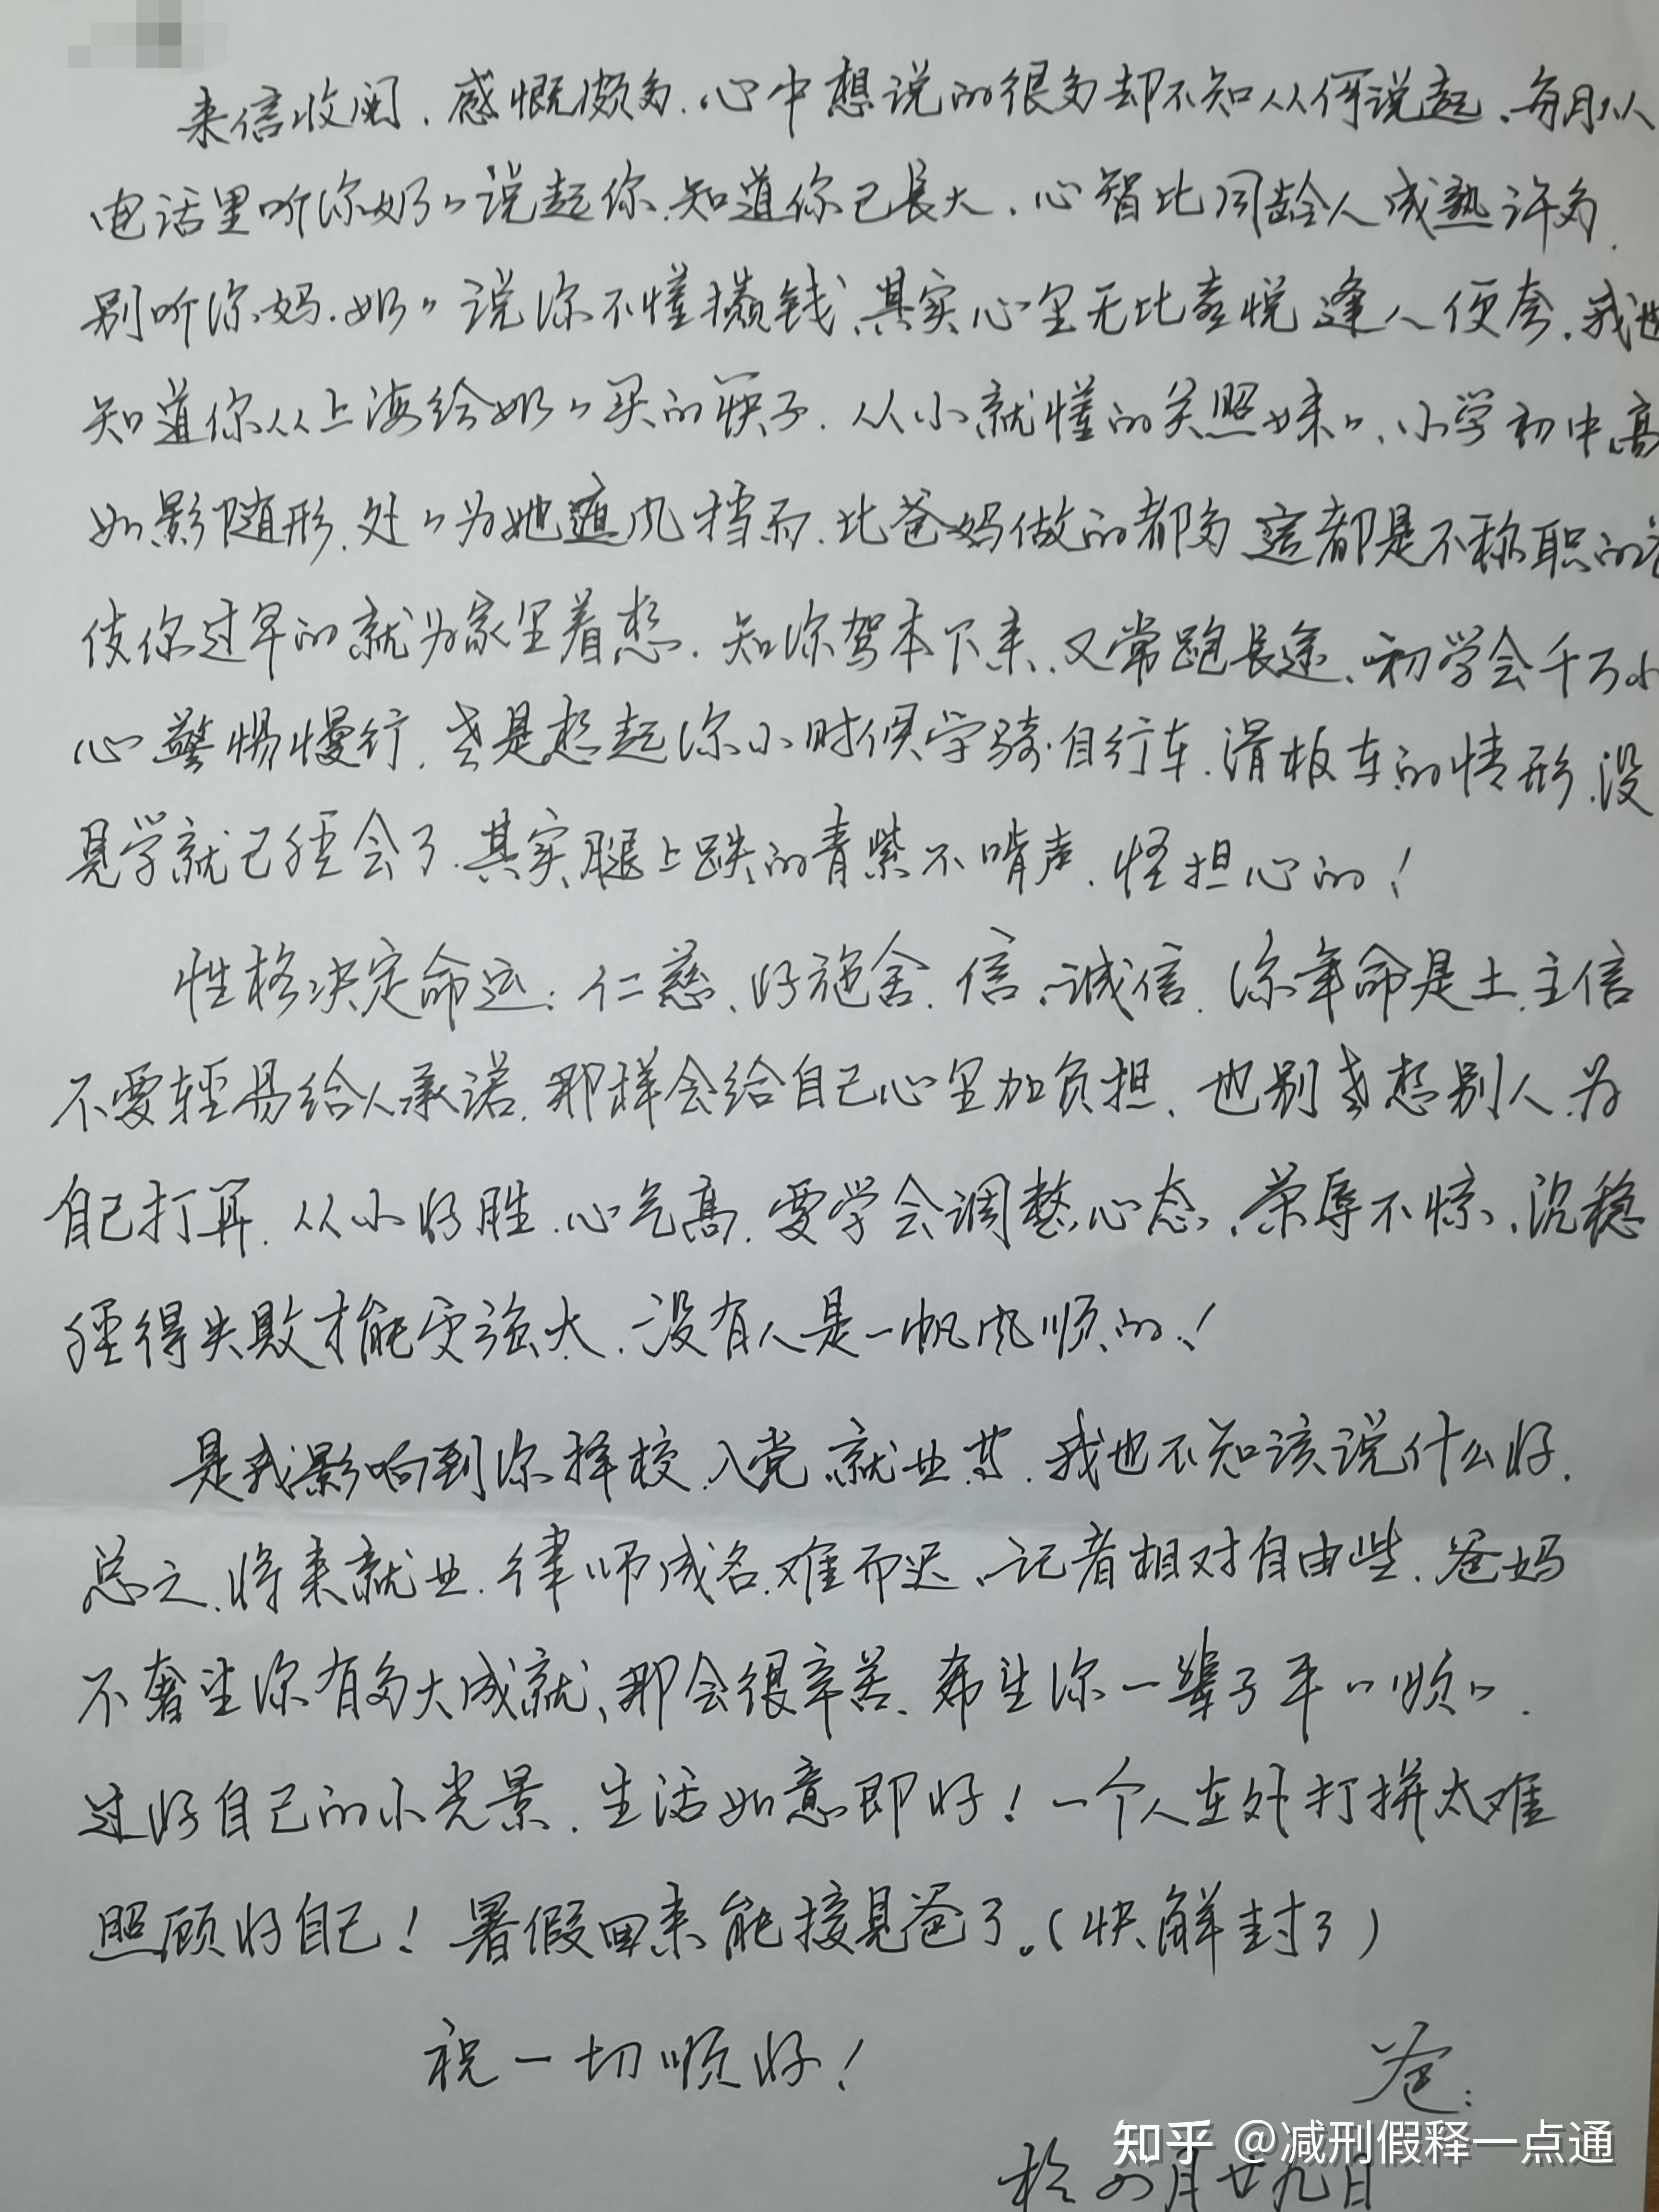 来信收阅，感慨颇多，心中想说的很多却不知从何说起，每月从
电话里听你奶〃说起你，知道你已長大，心智比同龄人成熟许多，
别听你妈、奶〃说你不懂攒钱，其实心里无比喜悦逢人便夸，我也
知道你从上海给奶〃买的筷子，从小就懂的关照妹〃，小学初中高
如影随形，处〃为她遮风挡雨，比爸妈做的都多這都是不称职的
使你过早的就为家里着想，知你驾本下来，又常跑長途，初学会千万小
心警惕慢行，老是想起你小时候学骑自行车、滑板车的情形，没
見学就已经会了，其实腿上跌的青紫不啃声，怪担心的！
性格决定命运：仁慈、好施舍，信、诚信，你年命是土，主信
不要轻易给人承诺，那样会给自己心里加负担，也别老想别人为
自己打算，从小好胜，心气高，要学会调整心态，荣辱不惊，沉稳
经得失败才能更强大，没有人是一帆风顺的！
是我影响到你择校、入党、就业等，我也不知该说什么好，
总之，将来就业，律师成名难而迟，记者相对自由些，爸妈
不奢望你有多大成就，那会很辛苦，希望你一辈子平〃顺〃，
过好自己的小光景，生活如意即好！一个人在外打拼太难
照顾好自己！暑假回来能接見爸了。（快解封了）
祝一切顺好！
爸：
於四月廿九日
知乎 @减刑假释一点通